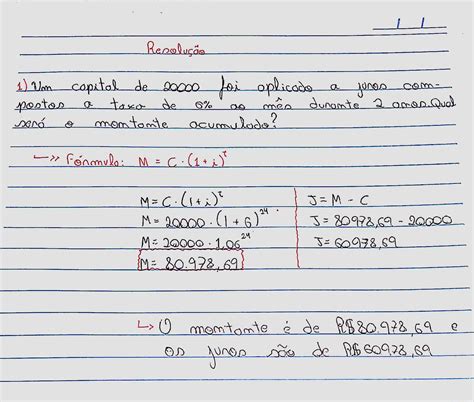 Resolução
1) Um capital de 20000 foi aplicado a juros com-
postos a taxa de 6% ao mês durante 2 anos. Qual
será o montante acumulado?
Fórmula: M = C · (1 + i)ᵗ
M = C · (1 + i)ᵗ
M = 20000 · (1 + 6)²⁴
M = 20000 · 1.06²⁴
M = 80.978,69
J = M - C
J = 80978,69 - 20000
J = 60978,69
O montante é de R$80.978,69 e
os juros são de R$60978,69